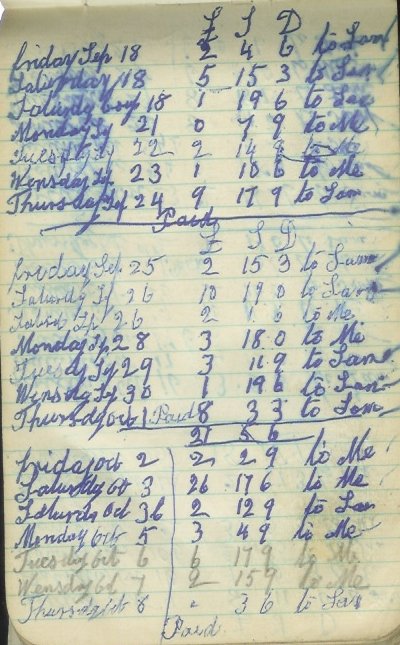 £ S D
Friday Sep 18 2 4 6 to Sam
Saturday 18 5 15 3 to Sam
Saturdy 18 1 19 6 to Sam
Monday Sep 21 0 7 9 to Me
Tuesdy Sep 22 2 14 9 to Me
Wensday Sep 23 1 10 6 to Me
Thursday Sep 24 9 17 9 to Sam
Paid
£ S D
Friday Sep 25 2 15 3 to Sam
Saturdy Sep 26 10 19 0 to Sam
Sep 26 2 to Me
Monday Sep 28 3 18 0 to Me
Tuesdy Sep 29 3 11 9 to Sam
Wensdy Sep 30 1 19 6 to Sam
Thursdy Oct 1 Paid 8 3 3 to Sam
5 6
Friday Oct 2 2 2 9 to Me
Saturday Oct 3 26 17 6 to Me
Saturda Oct 3 2 12 9 to Sam
Monday Oct 5 3 4 9 to Me
Tuesday Oct 6 6 17 9 to Me
Wensday Oct 7 2 15 9 to Me
Thursday Oct 8 - 3 6 to Sam
Paid